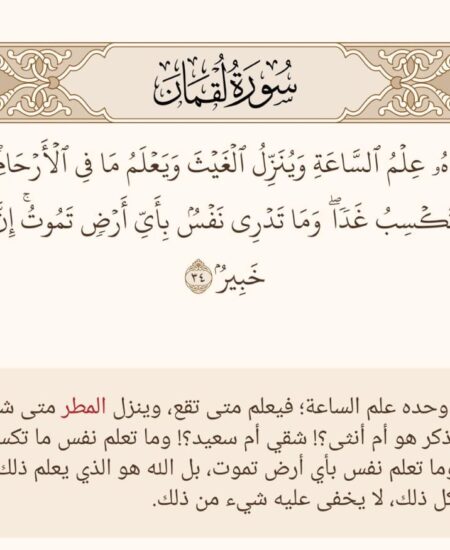 سُورَةُ لُقْمَان
عِلْمُ ٱلسَّاعَةِ وَيُنَزِّلُ ٱلْغَيْثَ وَيَعْلَمُ مَا فِى ٱلْأَرْحَامِ
تَكْسِبُ غَدًۭا ۖ وَمَا تَدْرِى نَفْسٌۢ بِأَىِّ أَرْضٍۢ تَمُوتُ ۚ إِنَّ
خَبِيرٌۢ ٣٤
وحده علم الساعة؛ فيعلم متى تقع، وينزل المطر متى
ذكر هو أم أنثى؟! شقي أم سعيد؟! وما تعلم نفس ما
وما تعلم نفس بأي أرض تموت، بل الله هو الذي يعلم ذلك
كل ذلك، لا يخفى عليه شيء من ذلك.